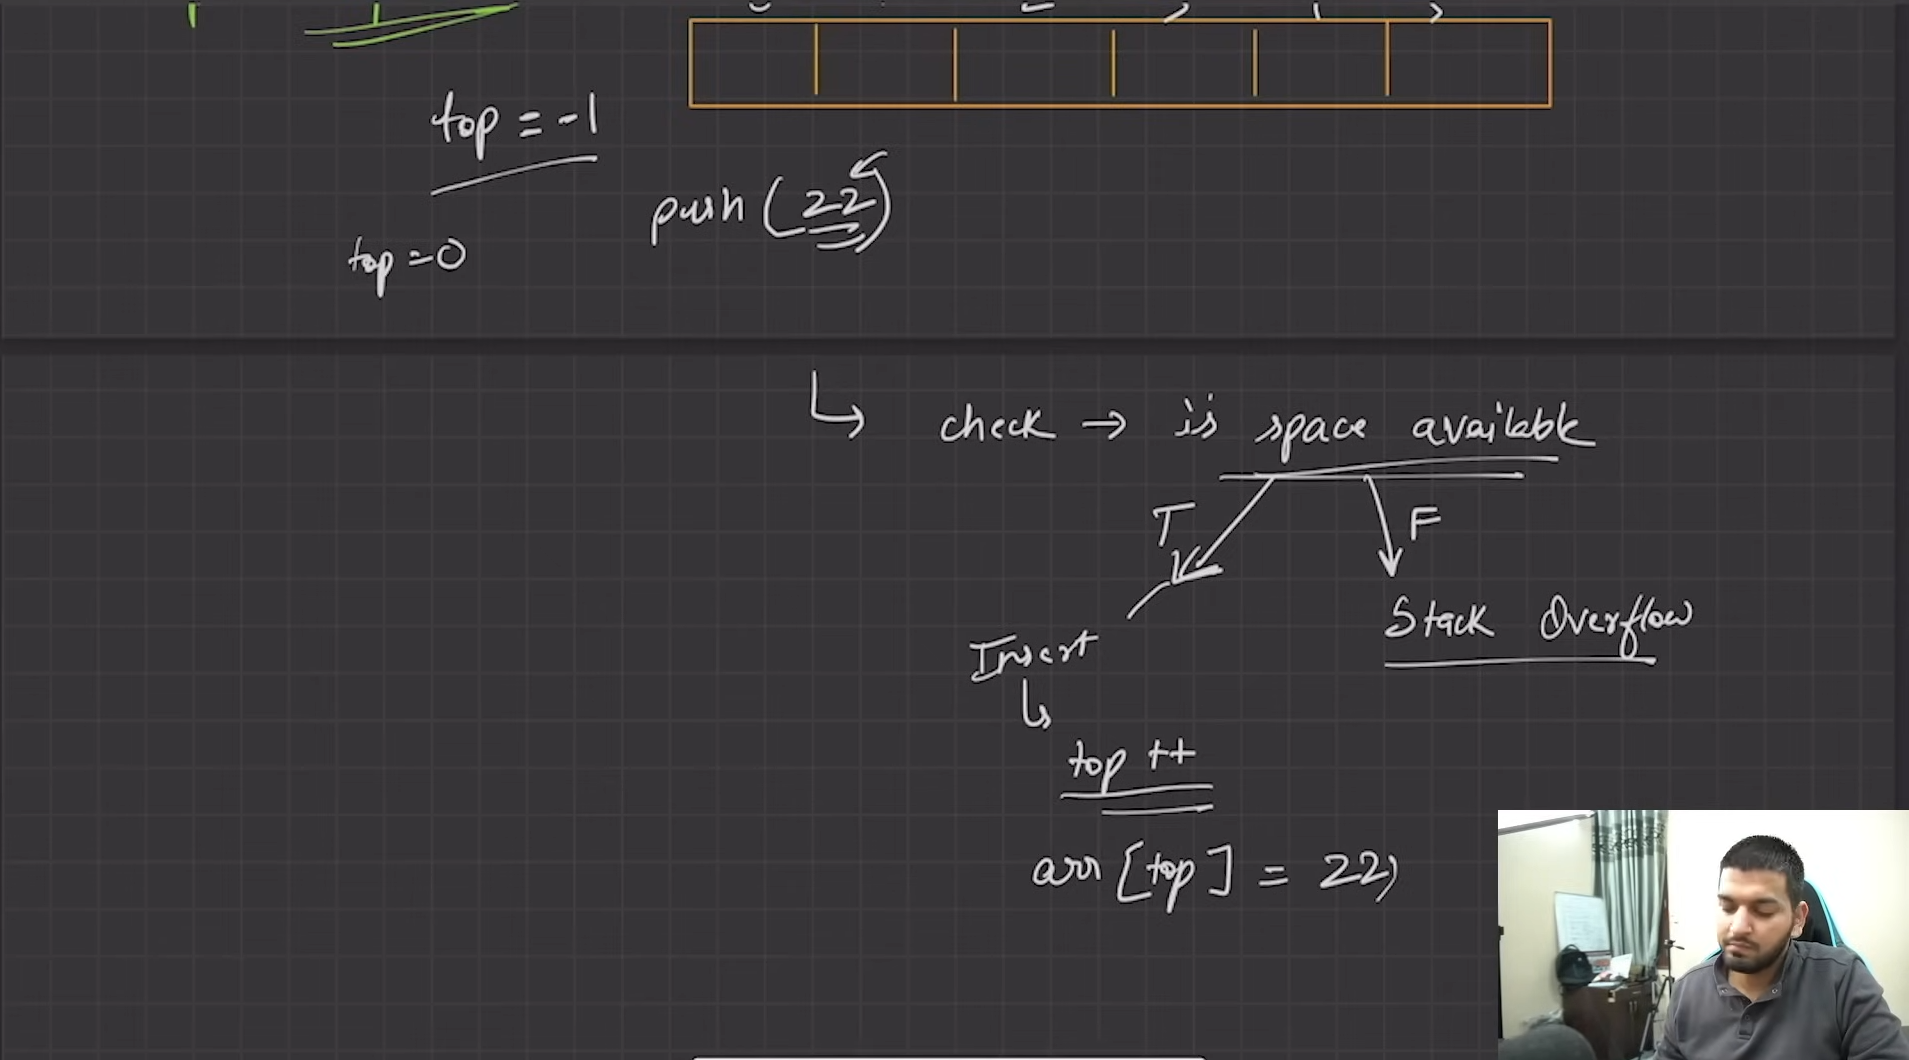 top = -1
push (22)
top = 0
check → is space available
T
F
Stack Overflow
Insert
top ++
arr [top] = 22;